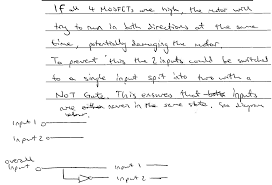 If all 4 MOSFETs are high, the motor will
try to run in both directions at the same
time, potentially damaging the motor
To prevent this the 2 inputs would be switched
to a single input split into two with a
NOT Gate. This ensures that inputs
are never in the same state. See diagram
below.
Input 1
Input 2
overall
Input
Input 1
Input 2